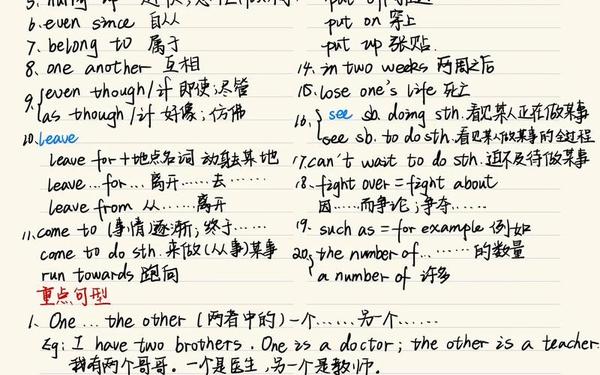 6. even since 自从
7. belong to 属于
8. one another 互相
9. even though/if 即使;尽管
as though/if 好像;仿佛
10. leave
leave for +地点名词 动身去某地
leave...for... 离开……去……
leave from 从……离开
11. come to (事情)逐渐;终于……
come to do sth. 来做(从事)某事
run towards 跑向
put on 穿上
put up 张贴.
14. in two weeks 两周之后
15. lose one's life 死亡
16. see sb. doing sth. 看见某人正在做某事
see sb. to do sth. 看见某人做某事的全过程
17. can't wait to do sth. 迫不及待做某事
18. fight over = fight about
因……而争论;争夺……
19. such as = for example 例如
20. the number of……的数量
a number of 许多
重点句型
1. One ... the other (两者中的)一个……另一个……
Eg: I have two brothers. One is a doctor; the other is a teacher.
我有两个哥哥。一个是医生,另一个是教师.